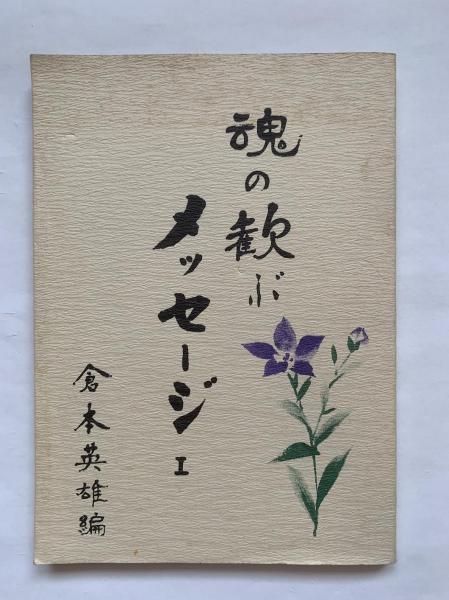 魂の歓ぶ
メッセージI
倉本英雄編